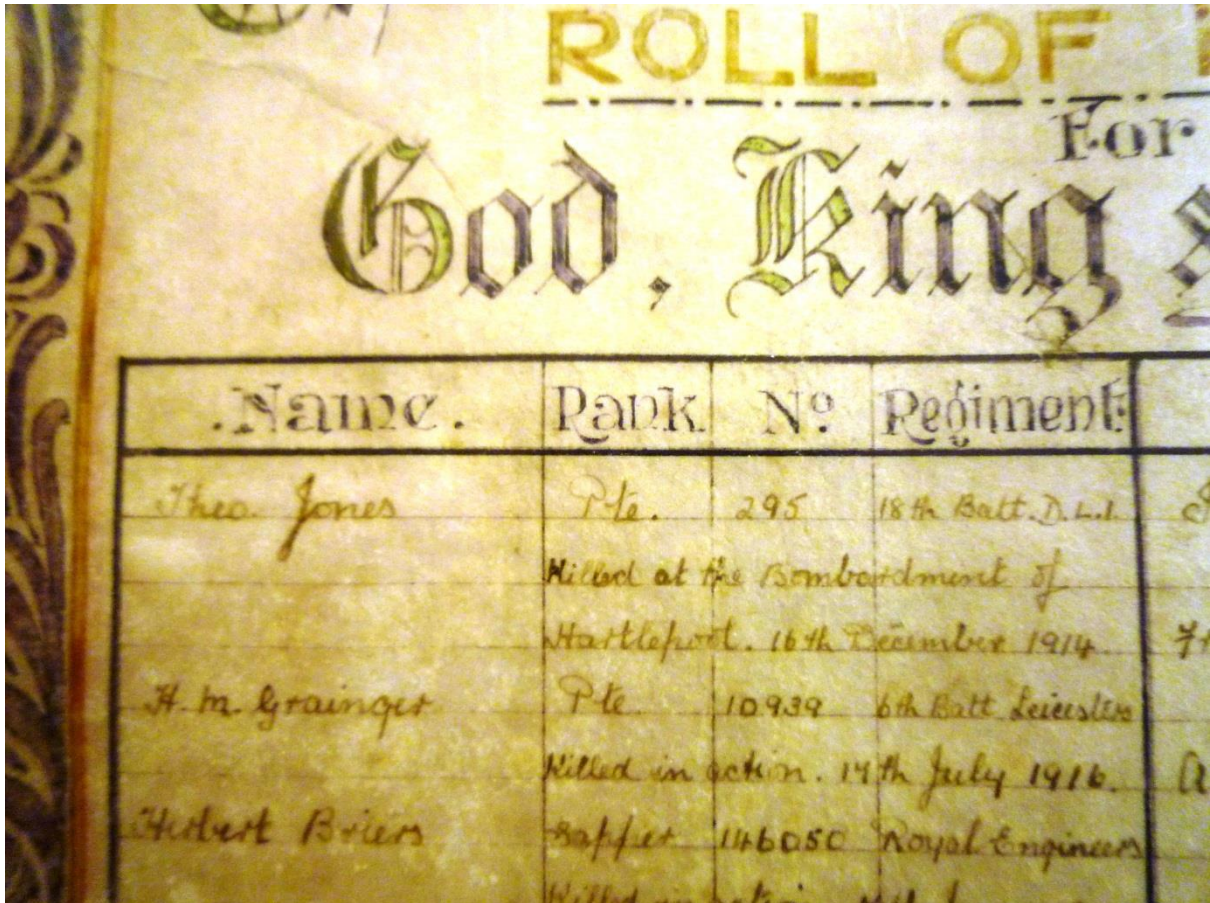 ROLL OF
For
God, King
.Name. Rank Nº Regiment:
Theo. Jones Pte. 295 18th Batt. D.L.I.
Killed at the Bombardment of
Hartlepool. 16th December 1914
H. M. Grainger Pte 10939 6th Batt Leicesters
Killed in action. 14th July 1916.
Herbert Briers Sapper 146050 Royal Engineers
Killed in action